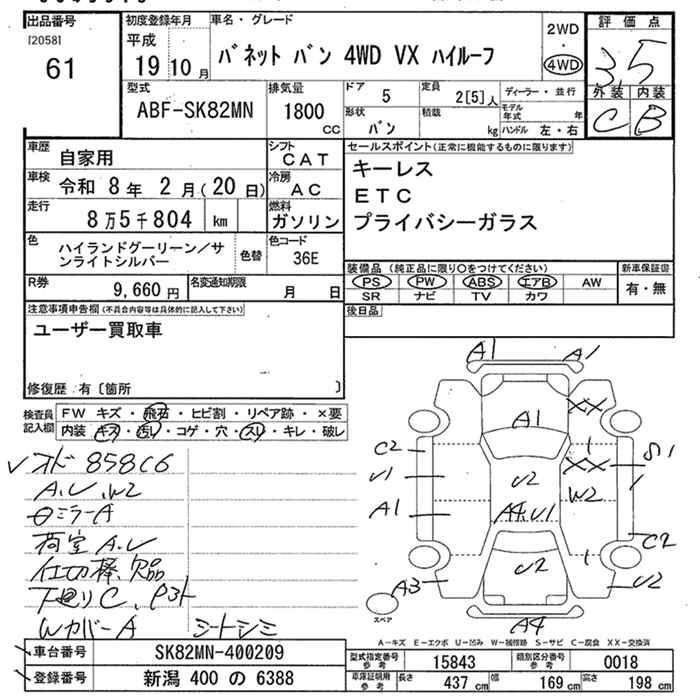 出品番号
[2058]
61
初度登録年月
平成
19 10 月
車名・グレード
バネット バン 4WD VX ハイルーフ
2WD
・
4WD
評価点
3.5
外装 内装
C B
型式
ABF-SK82MN
排気量
1800
CC
ドア
5
形状
バン
定員
2[5]人
積載
kg
ディーラー・並行
モデル
年式 年
ハンドル 左・右
車歴
自家用
シフト
CAT
車検
令和 8年 2月(20日)
冷房
AC
走行
8万5千804 km
燃料
ガソリン
色
ハイランドグーリーン/サ
ンライトシルバー
色替
色コード
36E
R券
9,660 円
名変通知期限
月 日
セールスポイント(正常に機能するものに限ります)
キーレス
ETC
プライバシーガラス
装備品 (純正品に限り○をつけてください)
PS PW ABS エアB AW
SR ナビ TV カワ
新車保証書
有・無
後日品
注意事項申告欄(不具合内容等は具体的に記入して下さい)
ユーザー買取車
修復歴 有〔箇所 〕
検査員
記入欄
FW キズ・飛石・ヒビ割・リペア跡・×要
内装 キズ・汚れ・コゲ・穴・スリ・キレ・破レ
A.U.W2
ミラーA
荷室 A.U
仕切棒、欠品
下廻りC、
WカバーA シートシミ
A1
A1
XX
A1
C2
1
S1
U1
U2
XX
1
W2
A1
A4.U1
C2
U2
1
A3
U2
スペア
A4
A-キズ E-エクボ U-凹み W-補修跡 S-サビ C-腐食 XX-交換済
車台番号
SK82MN-400209
登録番号
新潟 400 の 6388
型式指定番号
参考
15843
類別区分番号
参考
0018
車庫証明用
参考
長さ
437 cm
幅
169 cm
高さ
198 cm